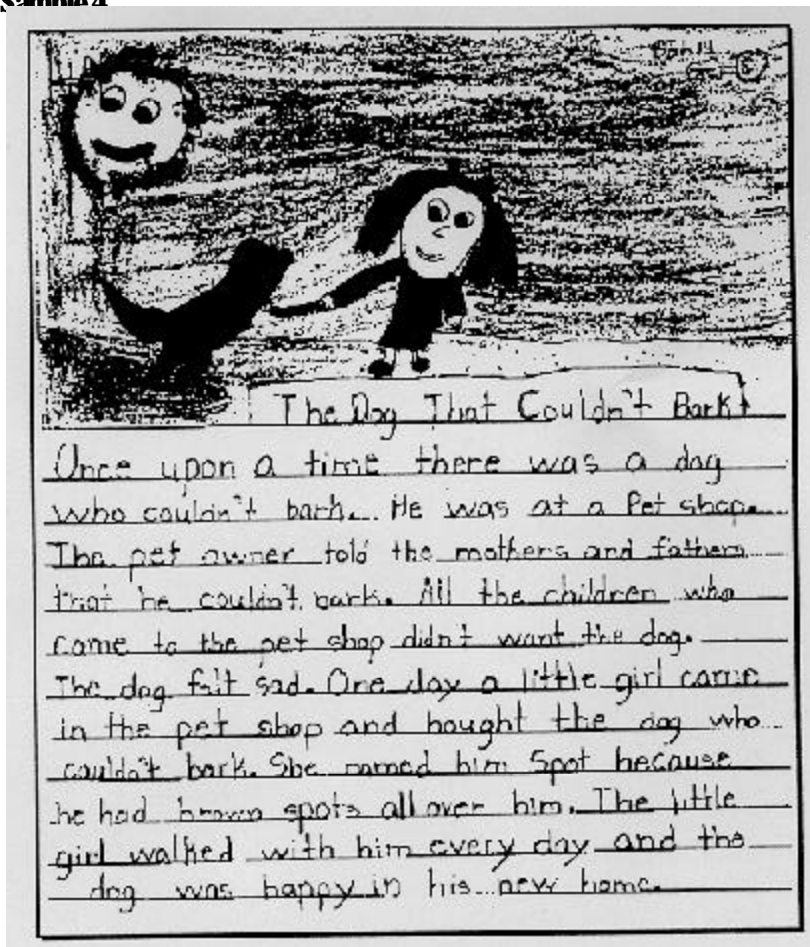 Sample 4
The Dog That Couldn't Bark
Once upon a time there was a dog
who couldn't bark. He was at a Pet shop.
The pet owner told the mothers and fathers
that he couldn't bark. All the children who
came to the pet shop didn't want the dog.
The dog felt sad. One day a little girl came
in the pet shop and bought the dog who
couldn't bark. She named him Spot because
he had brown spots all over him. The little
girl walked with him every day and the
dog was happy in his new home.